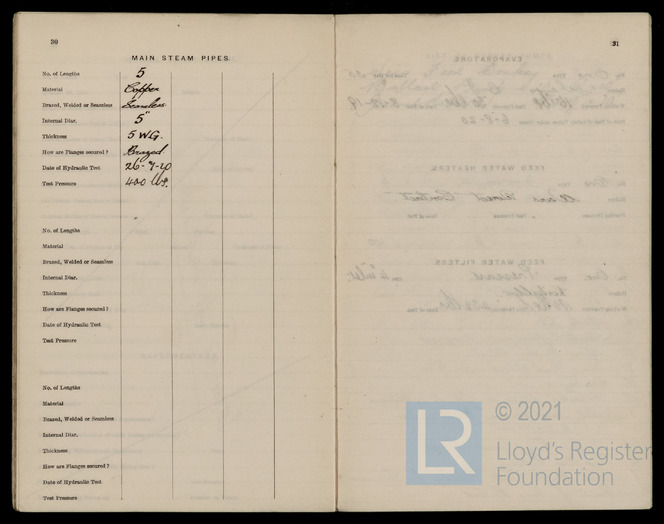 30
MAIN STEAM PIPES.
No. of Lengths 5
Material Copper
Brazed, Welded or Seamless Seamless
Internal Diar. 5"
Thickness 5 W.G.
How are Flanges secured? Brazed
Date of Hydraulic Test 26-7-20
Test Pressure 400 lbs.
No. of Lengths
Material
Brazed, Welded or Seamless
Internal Diar.
Thickness
How are Flanges secured?
Date of Hydraulic Test
Test Pressure
No. of Lengths
Material
Brazed, Welded or Seamless
Internal Diar.
Thickness
How are Flanges secured?
Date of Hydraulic Test
Test Pressure
31
EVAPORATORS.
FEED WATER HEATERS.
FEED WATER FILTERS.
LR
© 2021
Lloyd's Register
Foundation